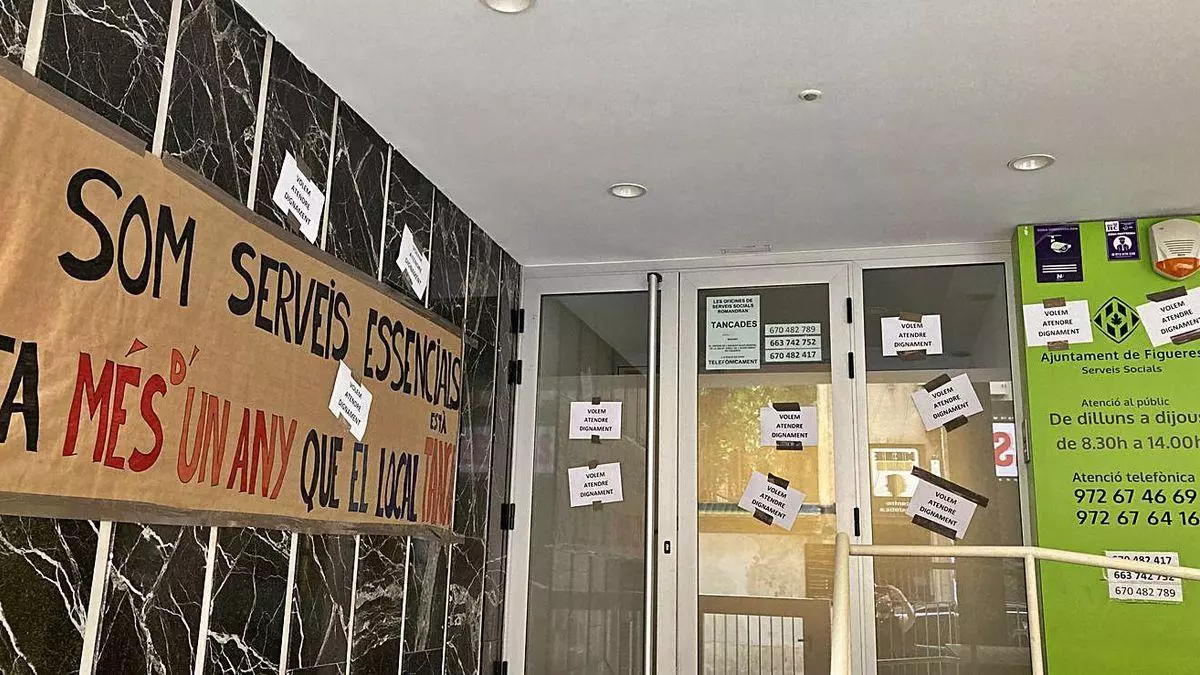 SOM SERVEIS ESSENCIALS
TA MÉS D'UN ANY QUE EL LOCAL ESTÀ
VOLEM
ATENDRE
DIGNAMENT
VOLEM
ATENDRE
DIGNAMENT
VOLEM
ATENDRE
DIGNAMENT
VOLEM
ATENDRE
DIGNAMENT
VOLEM
ATENDRE
DIGNAMENT
LES OFICINES DE
SERVEIS SOCIALS
ROMANDRAN
TANCADES
TELEFÒNICAMENT
670 482 789
663 742 752
670 482 417
VOLEM
ATENDRE
DIGNAMENT
VOLEM
ATENDRE
DIGNAMENT
VOLEM
ATENDRE
DIGNAMENT
VOLEM
ATENDRE
DIGNAMENT
VOLEM
ATENDRE
DIGNAMENT
VOLEM
ATENDRE
DIGNAMENT
VOLEM
ATENDRE
DIGNAMENT
Ajuntament de Figueres
Serveis Socials
Atenció al públic
De dilluns a dijou
de 8.30h a 14.00h
Atenció telefònica
972 67 46 69
972 67 64 16
670 482 417
663 742 752
670 482 789